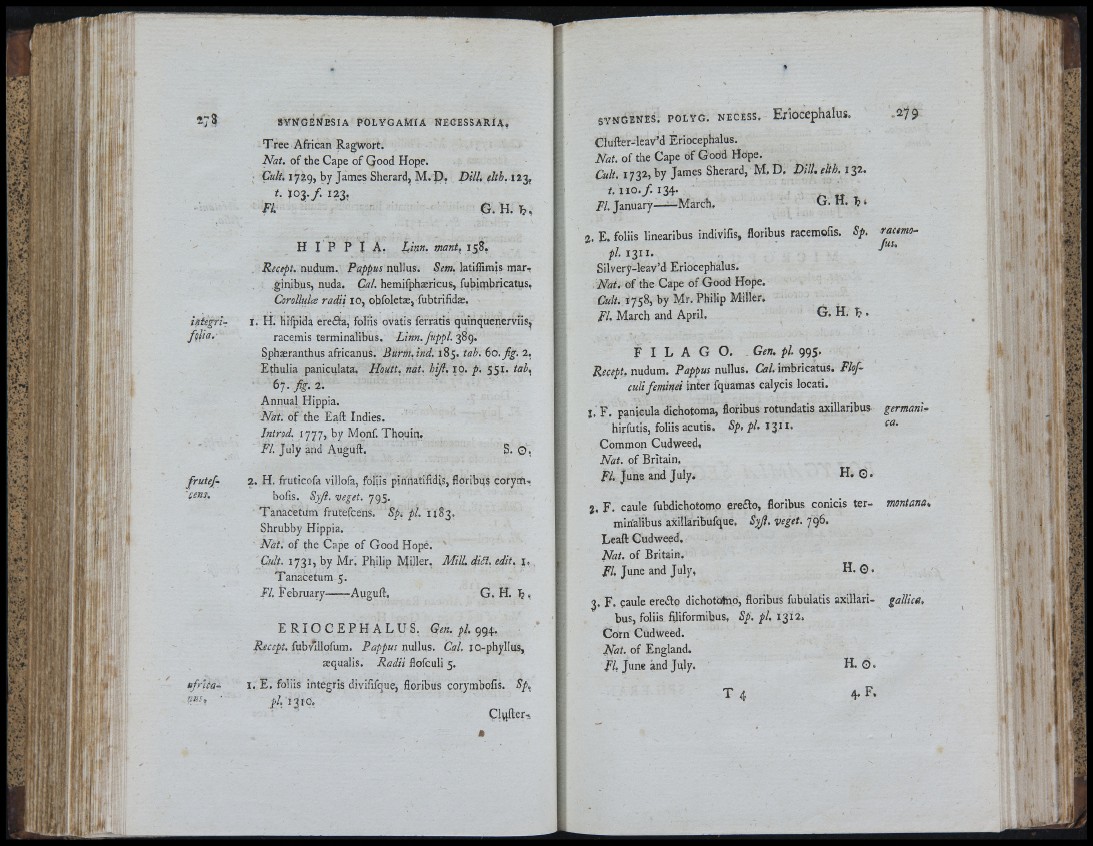 278 SYNGENESIA POLYGAMIA NECESSARIA.
Tree African Ragwort.
Nat. of the Cape of Good Hope.
Cult. 1729, by James Sherard, M.D. Dill. elth. 123,
t. 103. f. 123.
Fl. G. H. ♄.
HIPPIA. Linn. mant. 158.
Recept. nudum. Pappus nullus. Sem. latiſſimis mar-
ginibus, nuda. Cal. hemiſphæricus, ſubimbricatus.
Corollulæ radii 10, obſoletæ, ſubtrifidæ.
integri- 1. H. hiſpida erecta, foliis ovatis ſerratis quinquenerviis,
folia. racemis terminalibus. Linn. ſuppl. 389.
Sphæranthus africanus. Burm. ind. 185. tab. 60. fig. 2.
Ethulia paniculata. Houtt. nat. hiſt. 10. p. 551. tab.
67. fig. 2.
Annual Hippia.
Nat. of the Eaſt Indies.
Introd. 1777, by Monſ. Thouin.
Fl. July and Auguſt. S. ☉.
fruteſ- 2. H. fruticoſa villoſa, foliis pinnatifidis, floribus corym-
cens. boſis. Syſt. veget. 795.
Tanacetum fruteſcens. Sp. pl. 1183.
Shrubby Hippia.
Nat. of the Cape of Good Hope.
Cult. 1731, by Mr. Philip Miller. Mill. dict. edit. 1.
Tanacetum 5.
Fl. February——Auguſt. G. H. ♄.
ERIOCEPHALUS. Gen. pl. 994.
Recept. ſubvilloſum. Pappus nullus. Cal. 10-phyllus,
æqualis. Radii floſculi 5.
africa- 1. E. foliis integris diviſiſque, floribus corymboſis. Sp.
nus. pl. 1310.
Cluſter-
SYNGENES. POLYG. NECESS. Eriocephalus. 279
Cluſter-leav'd Eriocephalus.
Nat. of the Cape of Good Hope.
Cult. 1732, by James Sherard, M.D. Dill. elth. 132.
t. 110. f. 134.
Fl. January——March. G. H. ♄.
2. E. foliis linearibus indiviſis, floribus racemoſis. Sp. racemo-
pl. 1311. ſus.
Silvery-leav'd Eriocephalus.
Nat. of the Cape of Good Hope.
Cult. 1758, by Mr. Philip Miller.
Fl. March and April. G. H. ♄.
FILAGO. Gen. pl. 995.
Recept. nudum. Pappus nullus. Cal. imbricatus. Floſ-
culi feminei inter ſquamas calycis locati.
1. F. panicula dichotoma, floribus rotundatis axillaribus germani-
hirſutis, foliis acutis. Sp. pl. 1311. ca.
Common Cudweed.
Nat. of Britain.
Fl. June and July. H. ☉.
2. F. caule ſubdichotomo erecto, floribus conicis ter- montana.
minalibus axillaribuſque. Syſt. veget. 796.
Leaſt Cudweed.
Nat. of Britain.
Fl. June and July. H. ☉.
3. F. caule erecto dichotomo, floribus ſubulatis axillari- gallica.
bus, foliis filiformibus. Sp. pl. 1312.
Corn Cudweed.
Nat. of England.
Fl. June and July. H. ☉.
T 4 4. F.